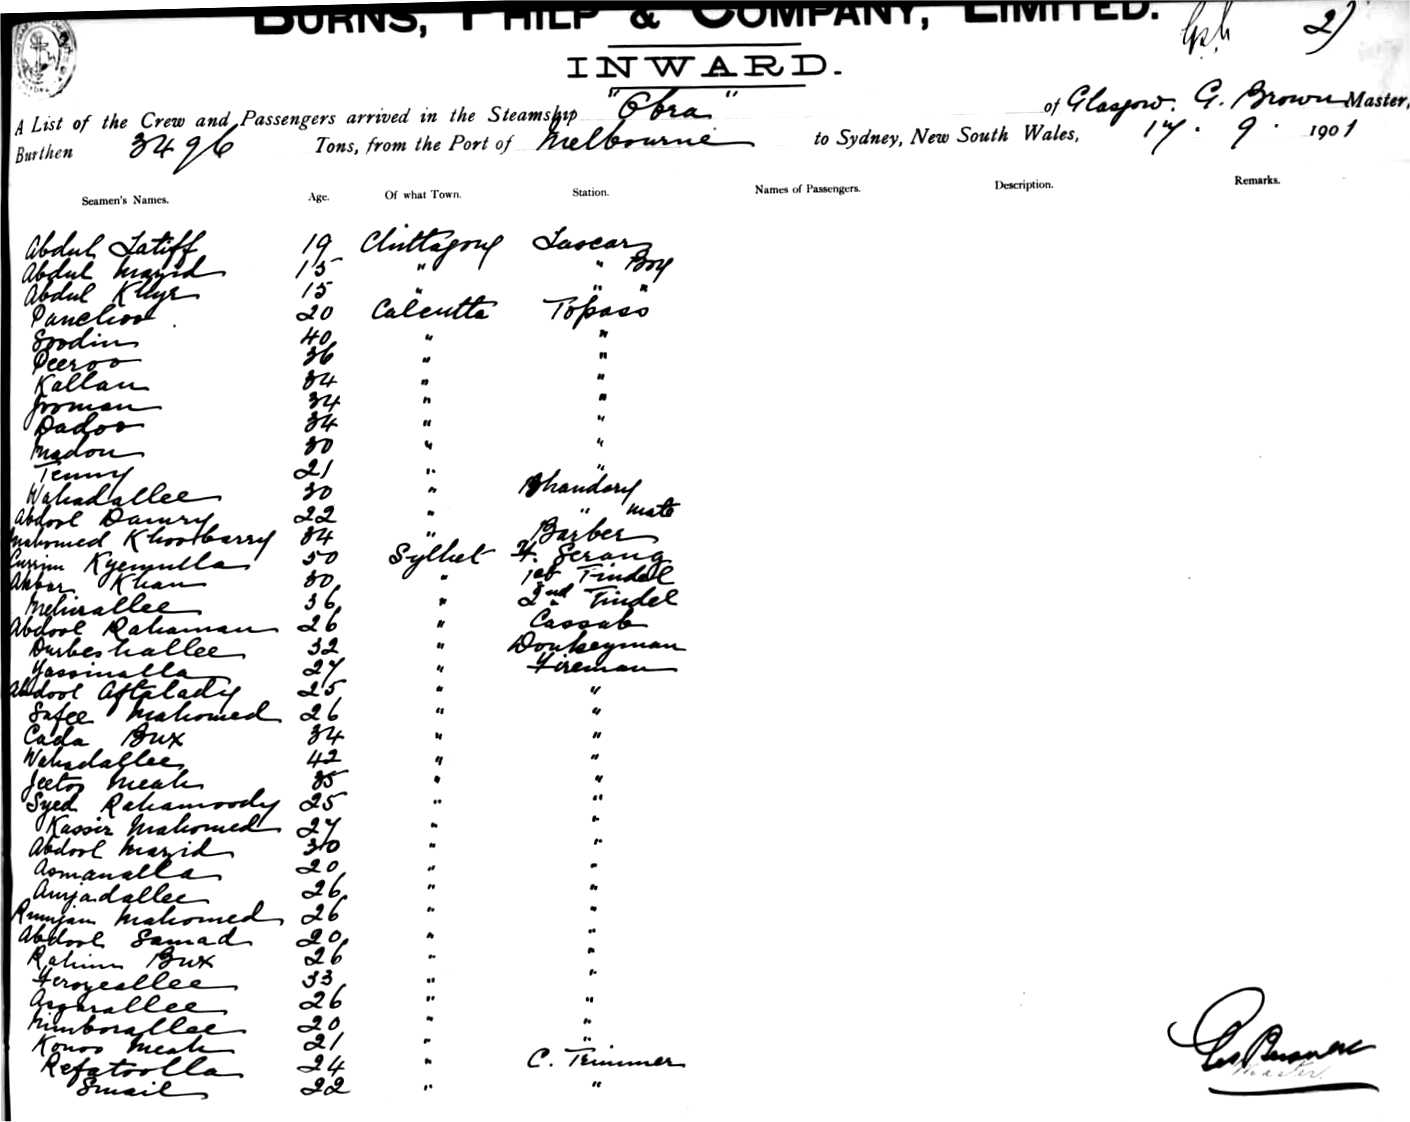 BURNS, PHILP & COMPANY, LIMITED.
2)
INWARD.
A List of the Crew and Passengers arrived in the Steamship "Obra" of Glasgow. G. Brown Master,
Burthen 3496 Tons, from the Port of Melbourne to Sydney, New South Wales, 17. 9. 1901
Seamen's Names. Age. Of what Town. Station. Names of Passengers. Description. Remarks.
Abdul Latiff 19 Chittagong Lascar
Abdul Mazid 15 " " Boy
Abdul Khyr 15 " " "
Panchoo 20 Calcutta Topass
Soodin 40 " "
Peeroo 36 " "
Kallan 34 " "
Jooman 34 " "
Dadoo 34 " "
Madou 30 " "
Tenny 21 " "
Wahadallee 30 " Bhandary
Abdool Damry 22 " " mate
Mahomed Khoobarry 34 " Barber
Currim Kyemulla 50 Sylhet F. Serang
Akbar Khan 30 " 1st Tindel
Mehirallee 36 " 2nd Tindel
Abdool Rahaman 26 " Cassab
Durbeshallee 32 " Donkeyman
Yassinalla 27 " Fireman
Abdool Aftalady 25 " "
Safee Mahomed 26 " "
Cada Bux 34 " "
Wahadallee 42 " "
Jeetoo Meah 35 " "
Syed Rahamoody 25 " "
Kassir Mahomed 27 " "
Abdool Mazid 30 " "
Asmanalla 20 " "
Amjadallee 26 " "
Rumjan Mahomed 26 " "
Abdool Samad 20 " "
Rahim Bux 26 " "
Ferozeallee 33 " "
Asgarallee 26 " "
Nimborallee 20 " "
Konoo Meah 21 " "
Refatoolla 24 " C. Trimmer
Smail 22 " "
Master.